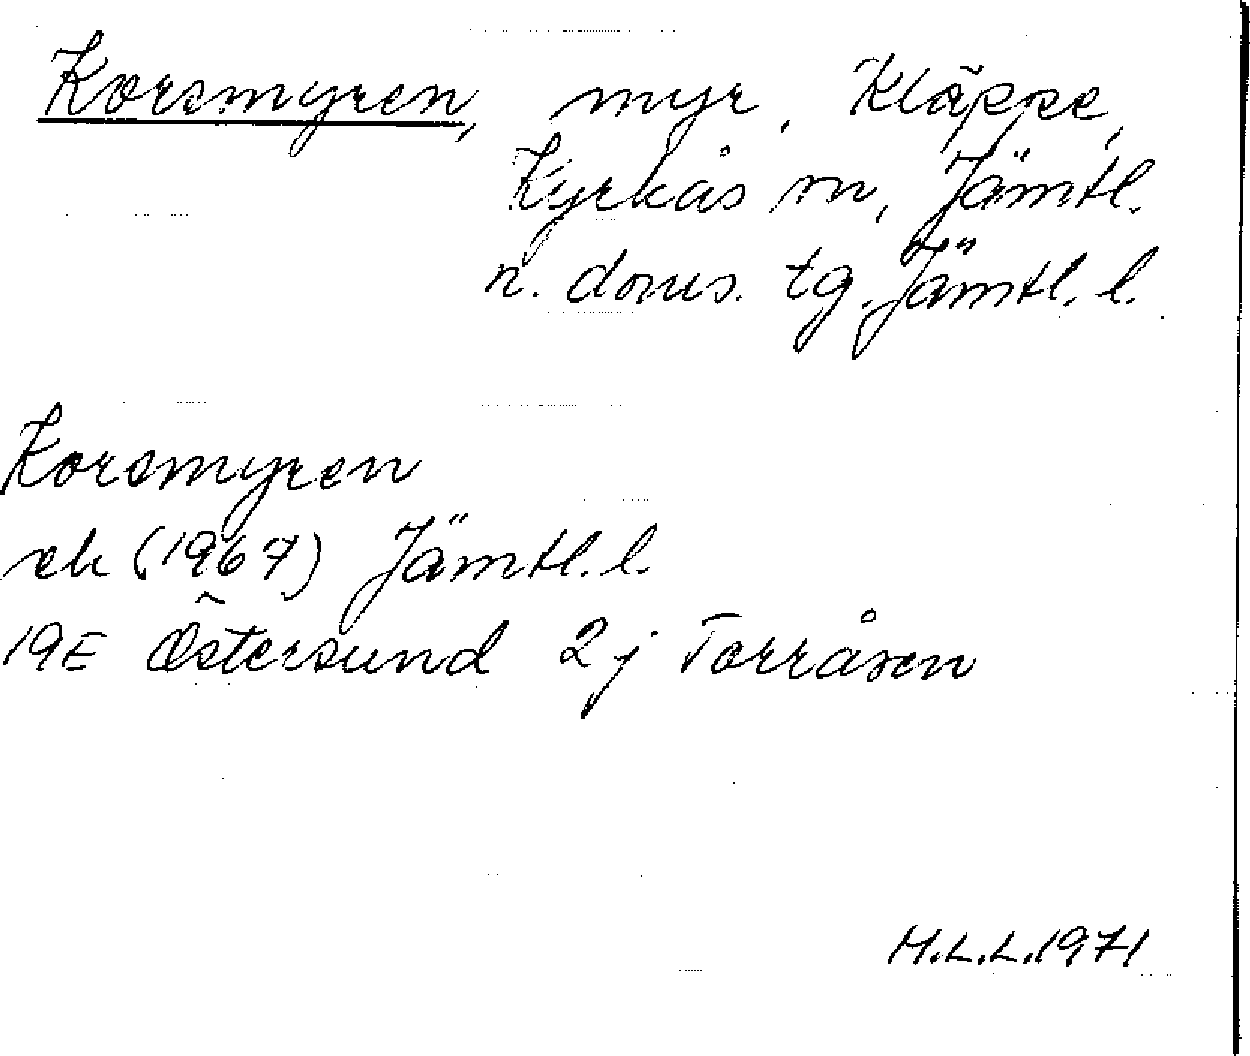 Korsmyren, myr, Kläppe,
Kyrkås sn, Jämtl.
n. doms. tg. Jämtl. l.
Korsmyren
ek (1967) Jämtl. l.
19E Östersund 2j Torråsen
M.L.L. 1971